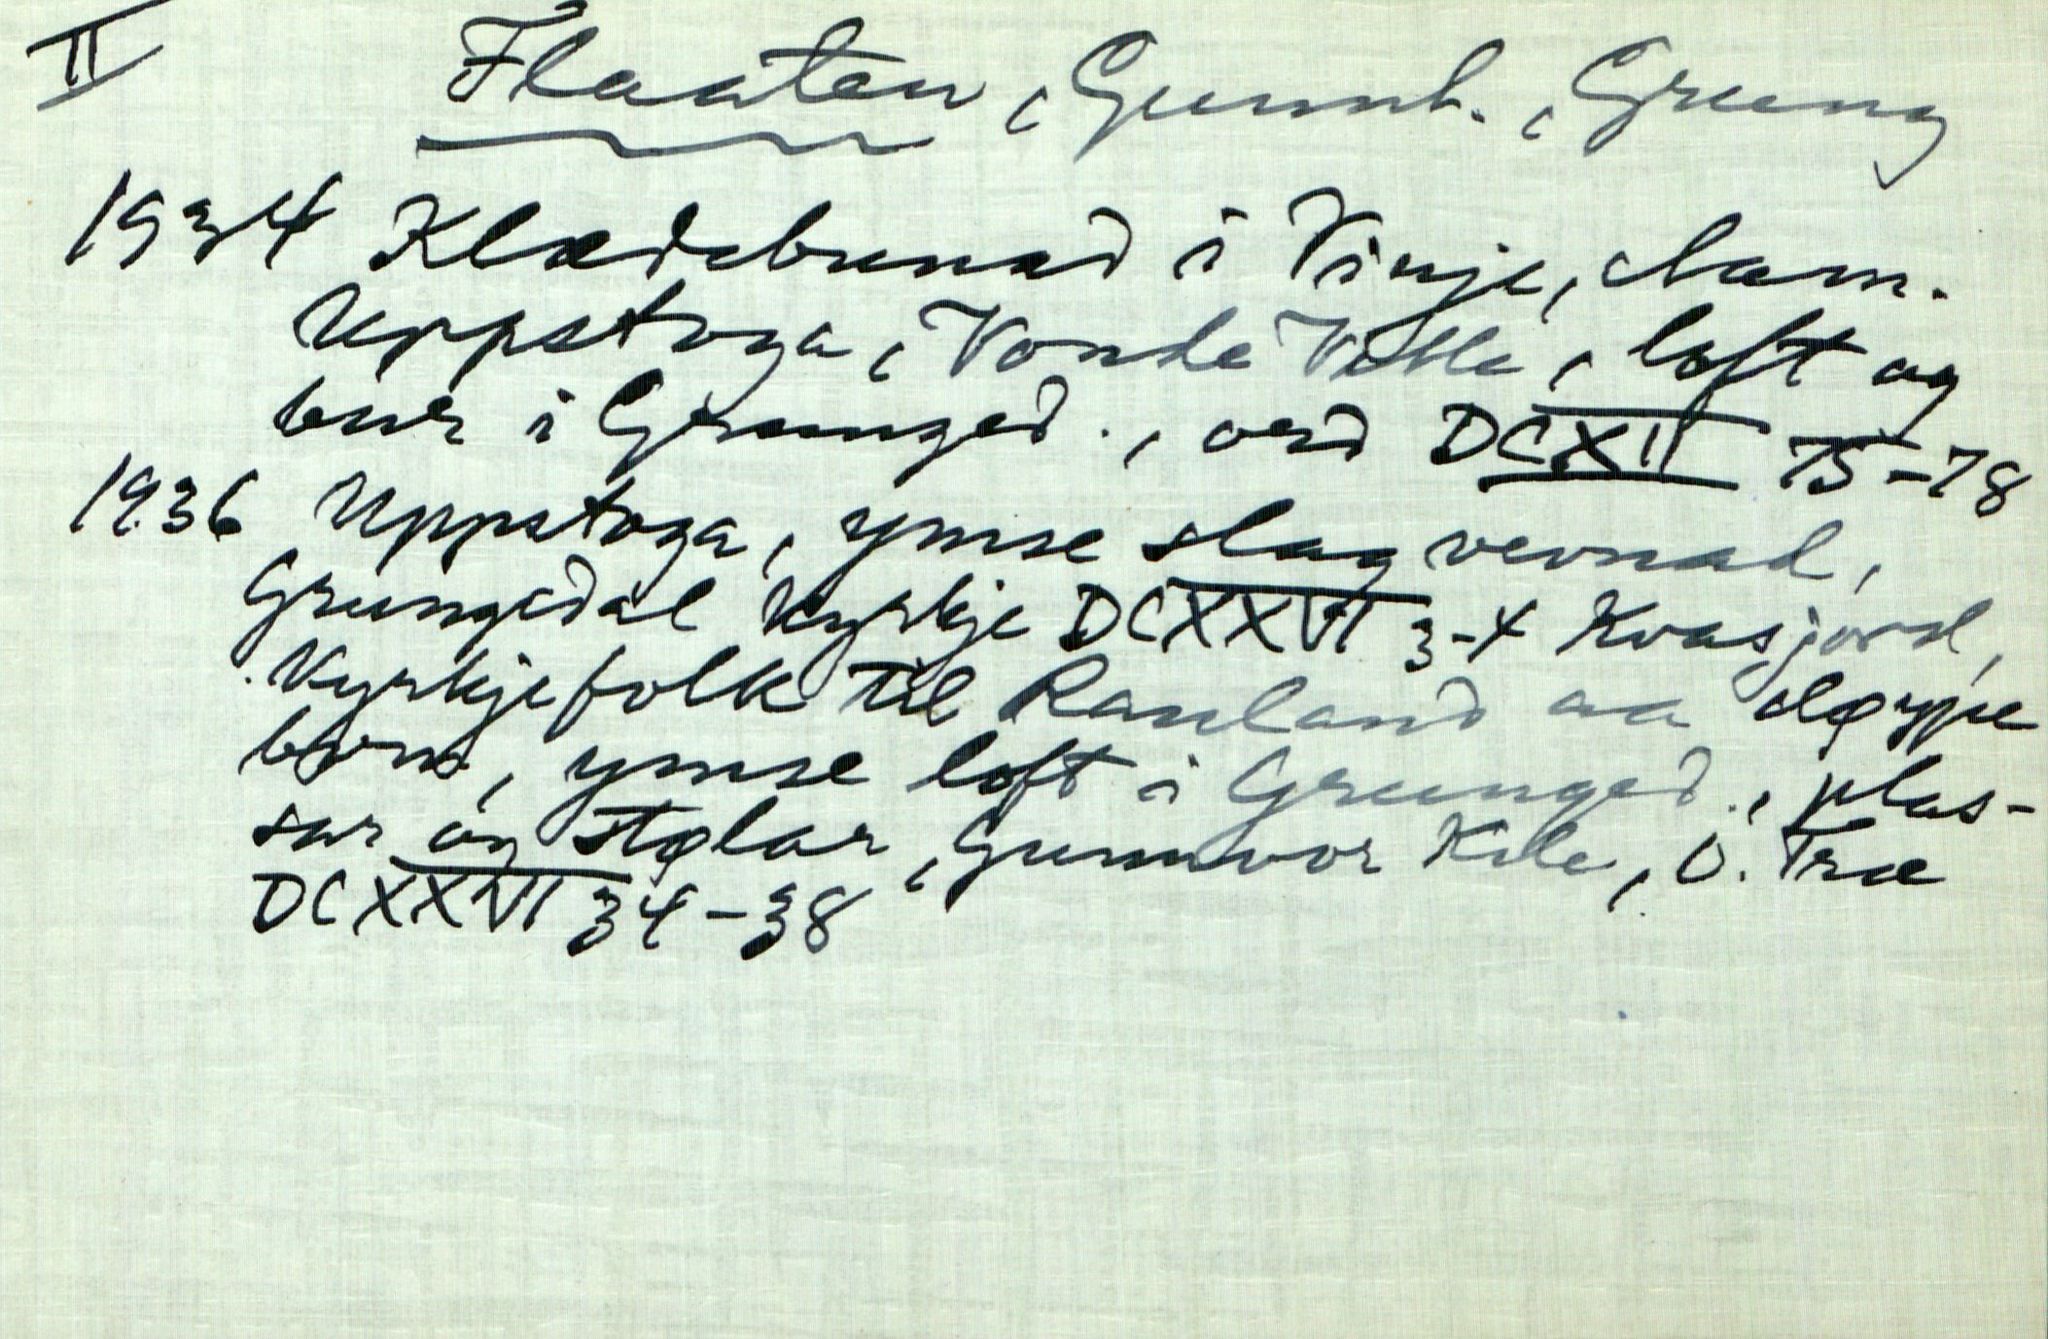 II Flaaten, Gunnh., Grung
1934 Klædebunad i Vinje, Aam.
Uppstoga, Vonde Vetle, loft og
bur i Grunged., ord DCXII 75-78
1936 Uppstoga, ymse slag vevnad,
Grungedal kyrkje DCXXVI 3-4 Kvasjord,
Kyrkjefolk til Rauland aa døype
born, ymse loft i Grunged., plas-
sar og stølar, Gunnvor Kile, O. Træ
DCXXVI 34-38